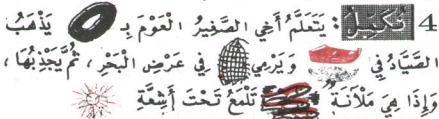 4 تَكْمِيلٌ : يَتَعَلَّمُ أَخِي الصَّغِيرُ الْعَوْمَ بِـ يَذْهَبُ
الصَّيَّادُ فِي وَيَرْمِي فِي عَرْضِ الْبَحْرِ ، ثُمَّ يَجْذِبُهَا ،
وَإِذَا هِيَ مَلْآنَةٌ تَلْمَعُ تَحْتَ أَشِعَّةِ